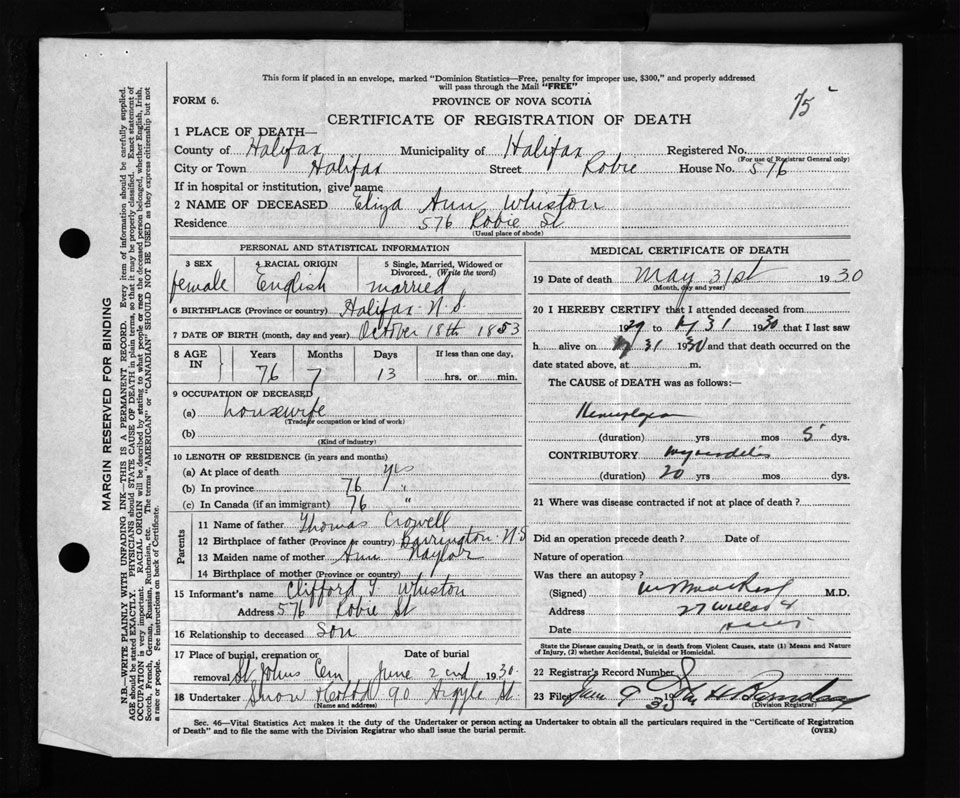 This form if placed in an envelope, marked "Dominion Statistics—Free, penalty for improper use, $300," and properly addressed
will pass through the Mail "FREE"
FORM 6.
PROVINCE OF NOVA SCOTIA
75
CERTIFICATE OF REGISTRATION OF DEATH
1 PLACE OF DEATH—
County of Halifax Municipality of Halifax Registered No.
(For use of Registrar General only)
City or Town Halifax Street Robie House No. 576
If in hospital or institution, give name
2 NAME OF DECEASED Eliza Ann Whiston
Residence 576 Robie St
(Usual place of abode)
PERSONAL AND STATISTICAL INFORMATION
3 SEX female
4 RACIAL ORIGIN English
5 Single, Married, Widowed or Divorced. (Write the word) married
6 BIRTHPLACE (Province or country) Halifax N.S.
7 DATE OF BIRTH (month, day and year) October 18th 1853
8 AGE IN Years Months Days If less than one day,
76 7 13 hrs. or min.
9 OCCUPATION OF DECEASED
(a) housewife
(Trade or occupation or kind of work)
(b)
(Kind of industry)
10 LENGTH OF RESIDENCE (in years and months)
(a) At place of death yrs
(b) In province 76 "
(c) In Canada (if an immigrant) 76 "
Parents
11 Name of father Thomas Crowell
12 Birthplace of father (Province or country) Barrington N.S
13 Maiden name of mother Ann Naylor
14 Birthplace of mother (Province or country)
15 Informant's name Clifford T Whiston
Address 576 Robie St
16 Relationship to deceased Son
17 Place of burial, cremation or removal St Johns Cem Date of burial June 2nd 1930
18 Undertaker Snow 90 Argyle St.
(Name and address)
MEDICAL CERTIFICATE OF DEATH
19 Date of death May 31st 1930
(Month, day and year)
20 I HEREBY CERTIFY that I attended deceased from
1929 to 31 1930 that I last saw
h alive on 31 1930 and that death occurred on the
date stated above, at m.
The CAUSE of DEATH was as follows:—
(duration) yrs mos 5 dys.
CONTRIBUTORY
(duration) 20 yrs. mos. dys.
21 Where was disease contracted if not at place of death?
Did an operation precede death? Date of
Nature of operation
Was there an autopsy?
(Signed) M.D.
Address 27
Date
State the Disease causing Death, or in death from Violent Causes, state (1) Means and Nature
of Injury, (2) whether Accidental, Suicidal or Homicidal.
22 Registrar's Record Number
23 Filed June 9 1930
(Division Registrar)
Sec. 46—Vital Statistics Act makes it the duty of the Undertaker or person acting as Undertaker to obtain all the particulars required in the "Certificate of Registration
of Death" and to file the same with the Division Registrar who shall issue the burial permit.
(OVER)
MARGIN RESERVED FOR BINDING
N.B.—WRITE PLAINLY WITH UNFADING INK—THIS IS A PERMANENT RECORD. Every item of information should be carefully supplied.
AGE should be stated EXACTLY. PHYSICIANS should STATE CAUSE OF DEATH in plain terms, so that it may be properly classified. Exact statement of
OCCUPATION is very important. RACIAL ORIGIN will be described by stating to what people or race the deceased person belonged, whether English, Irish,
Scotch, French, German, Russian, Ruthenian, etc. The terms "AMERICAN" or "CANADIAN" SHOULD NOT BE USED as they express citizenship but not
a race or people. See instructions on back of Certificate.